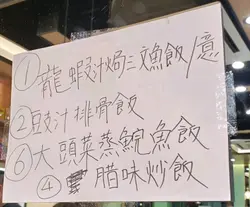 ① 龍蝦汁焗三文魚飯/意
② 豉汁排骨飯
⑥ 大頭菜蒸鯇魚飯
④ 臘味炒飯